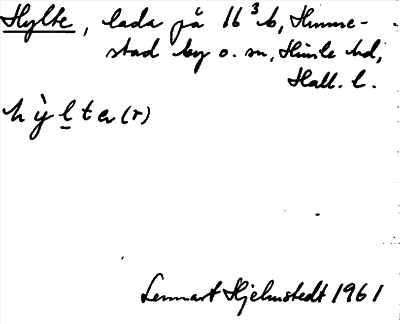 Hylte, lada på 16³ b, Himme-
stad by o. sn, Himle hd,
Hall. l.
hỳl̲tɘ(r)
Lennart Hjelmstedt 1961